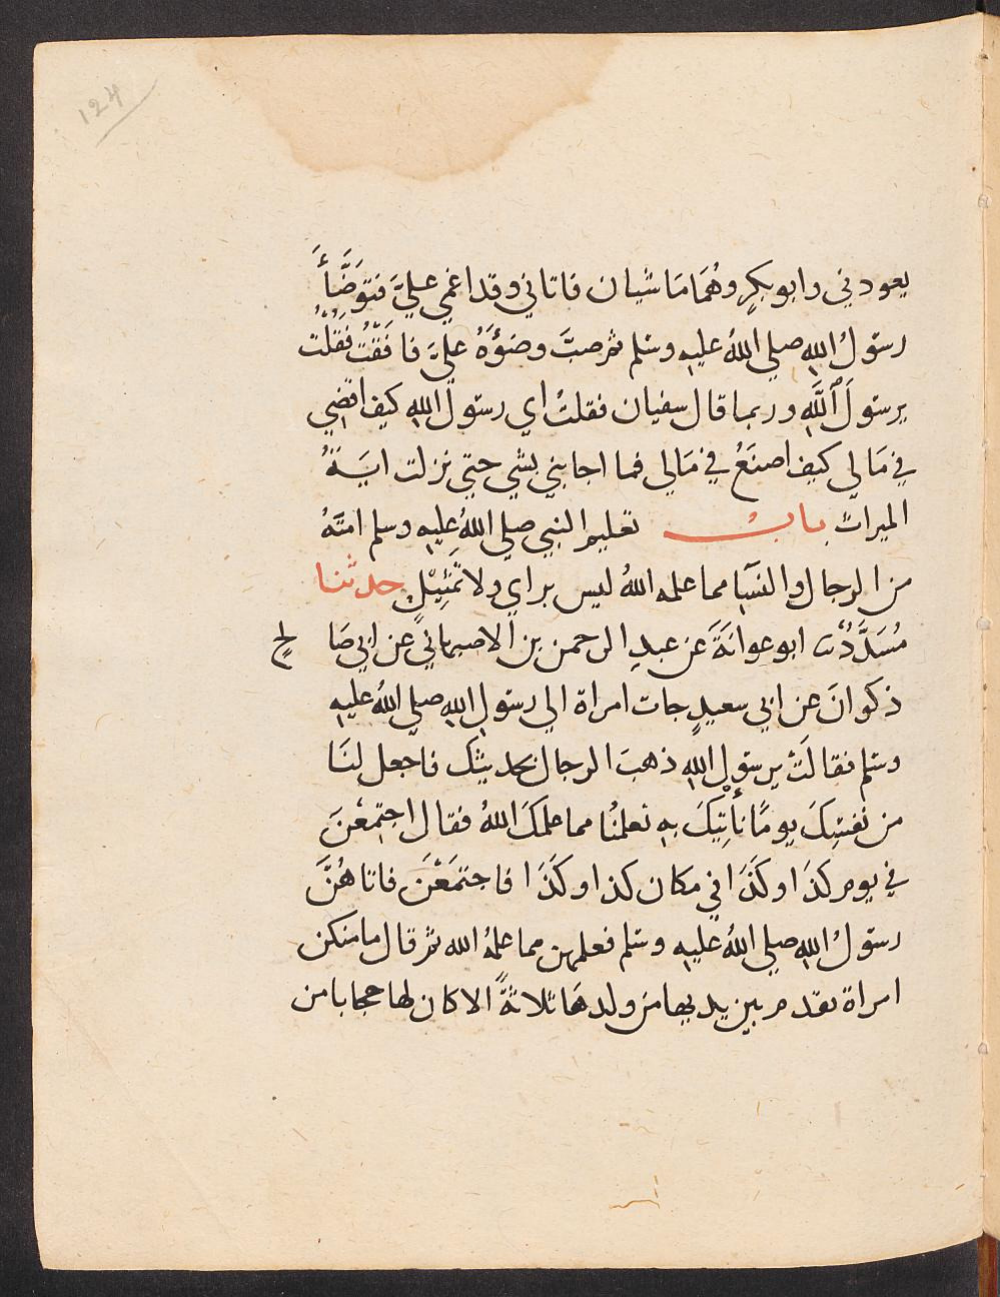 124
يعودني وابو بكرٍ وهُمَا مَاشيان فاتاني وقد اغمي عليَّ فتوَضَّأَ
رسَولُ اللهِ صلي اللهُ عليهِ وسَلم ثم صبَّ وضوَءَهُ عليَّ فافَقْتُ فَقُلْتُ
يرسَولَ اللَّهِ وربما قال سفيان فقلتُ اي رسَولَ اللهِ كيف اقضي
في مَالي كيف اصنَعُ في مَالي فما اجابني بشي حتي نزلت ايَةُ
الميراث بابُ تعليم النبي صلي اللهُ عليهِ وسلم امتَهُ
من الرجال والنسَا مما علمه اللهُ ليس براي ولا تمثيلٍ حدثنا
مُسَدَّدٌ ابو عوانَةَ عن عبدِ الرحمن بن الاصبهاني عن ابي صَالحٍ
ذكوانَ عن ابي سعيدٍ جات امراة الي رسَولِ اللهِ صلي اللهُ عليهِ
وسَلم فقالَتْ يرسَولَ اللهِ ذهبَ الرجال بحديثك فاجعل لنَا
من نفسِكَ يومًا نأتِيكَ بهِ تعلمُنا مما علمكَ اللهُ فقال اجتمِعْنَ
في يوم كذَا وكَذَا في مكان كذا وكَذَا فاجتمَعْنَ فاتاهُنَّ
رسَولُ اللهِ صلي اللهُ عليهِ وسَلم فعلمهن مما علمهُ الله ثم قال ما منكن
امراة تقدم بين يديها من ولدهَا ثلاثةً الا كان لها حجابا من